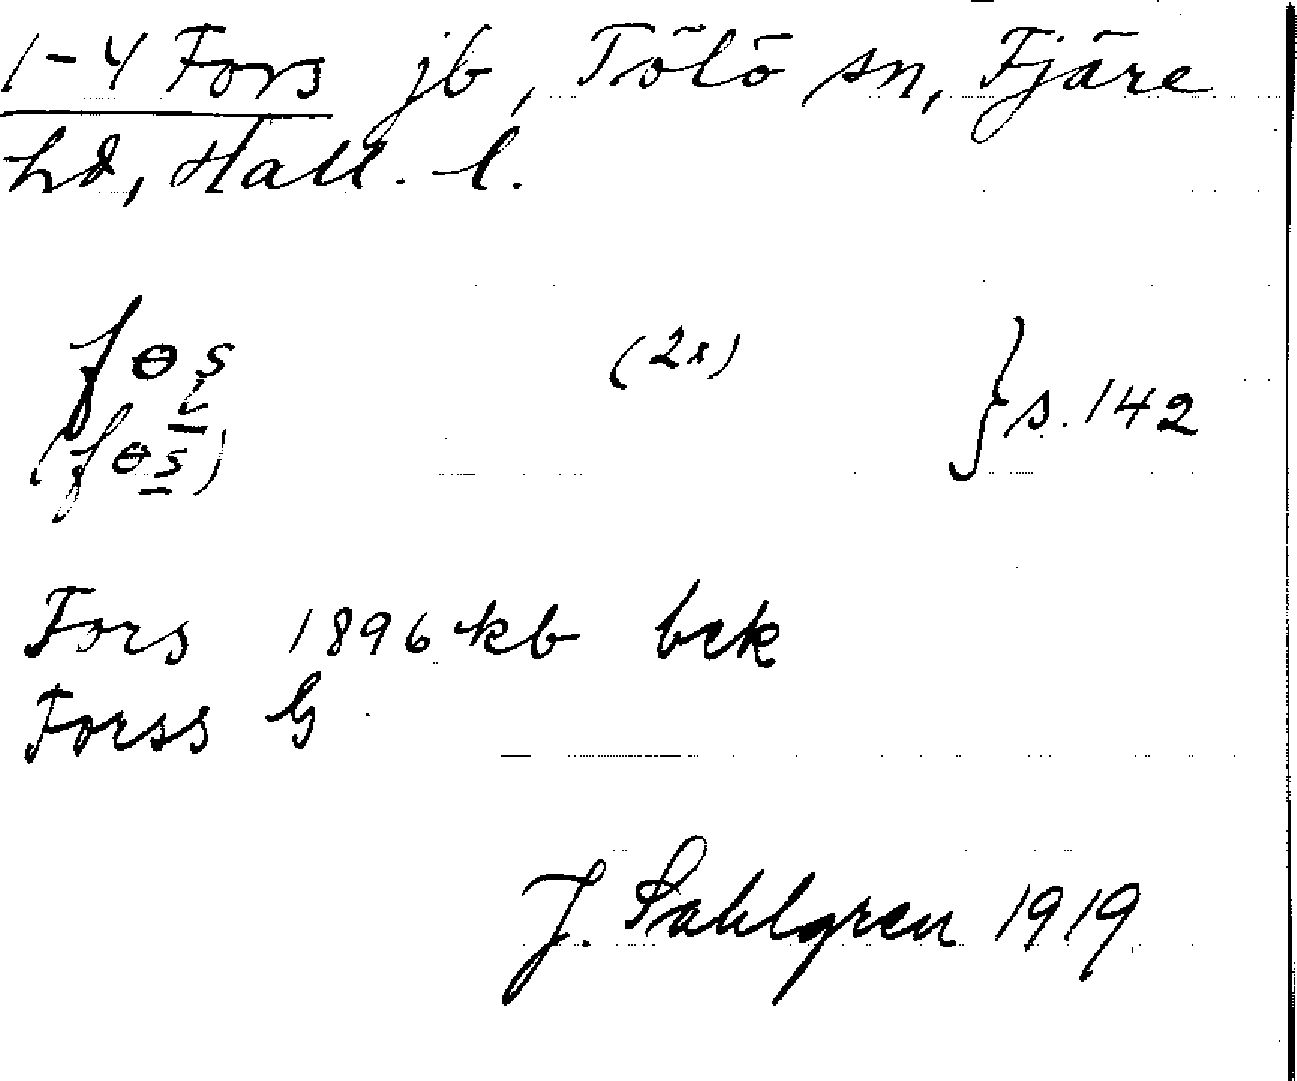 1-4 Fors jb, Tölö sn, Fjäre
hd, Hall. l.
fɵs̨ (2x) } s. 142
(fɵs)
Fors 1896 kb bek
Forss G
J. Sahlgren 1919